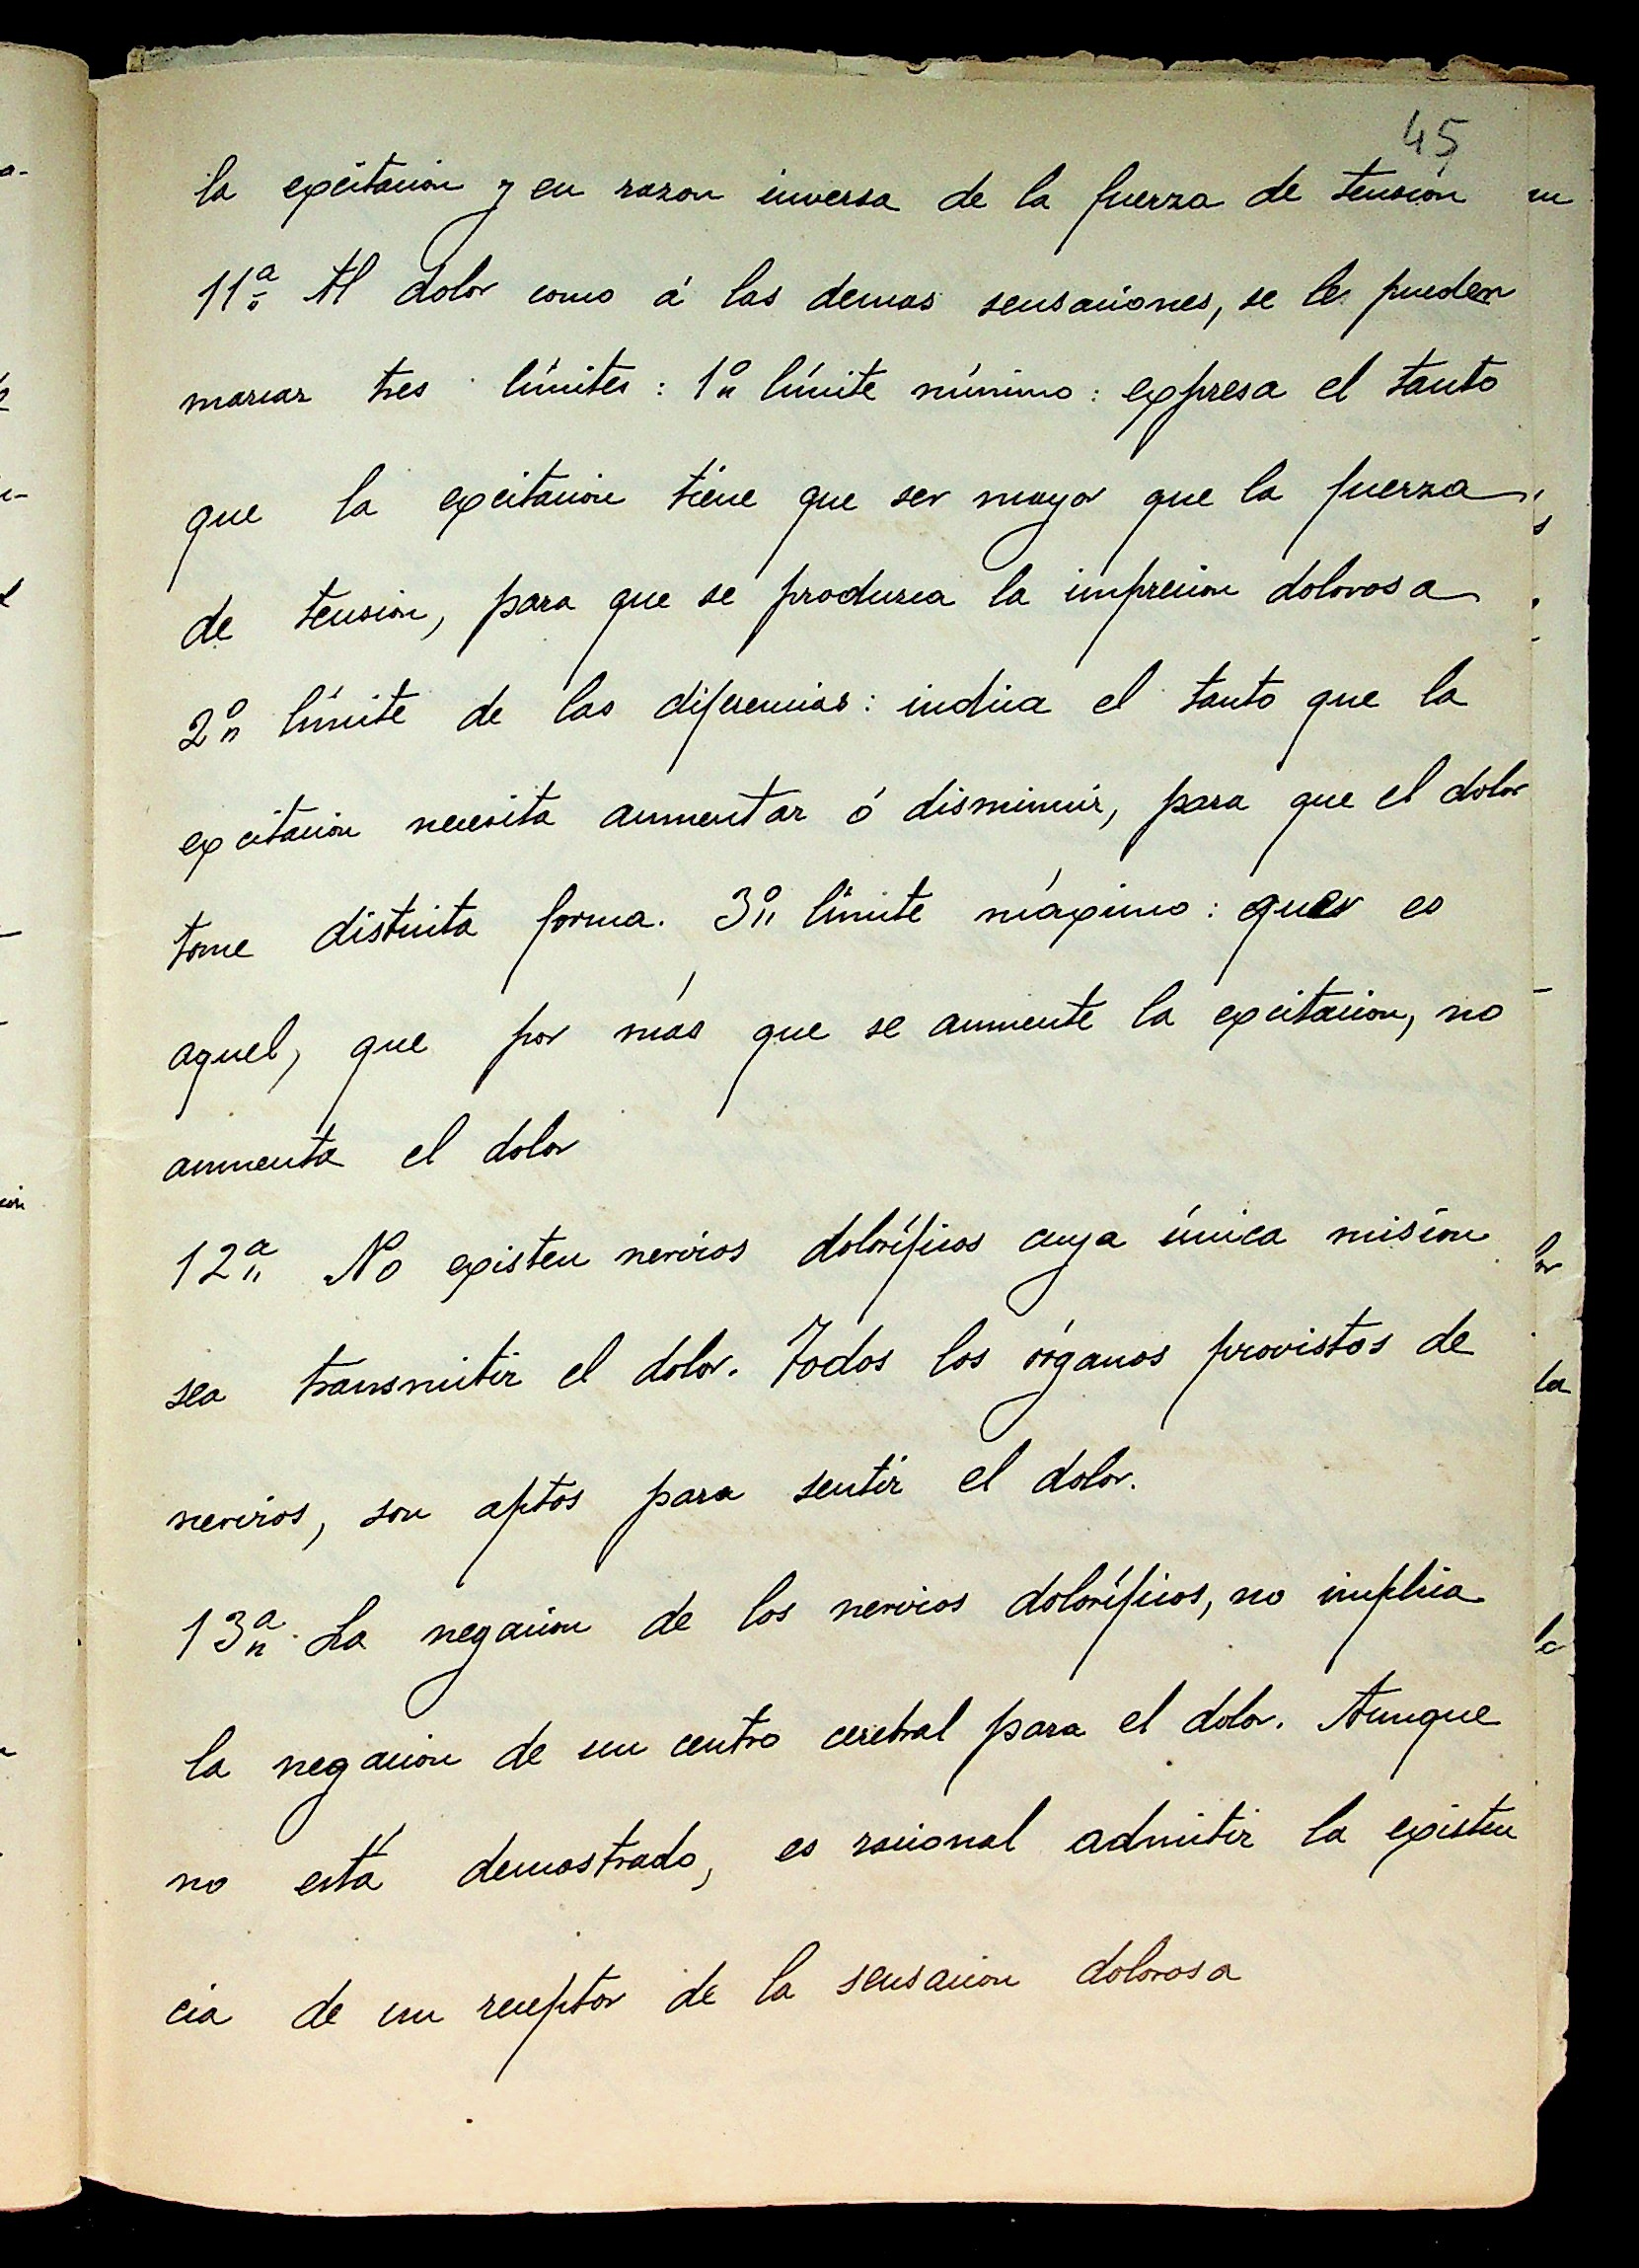 45
la excitacion y en razon inversa de la fuerza de tensión
11ª Al dolor como á las demas sensaciones, se le pueden
marcar tres límites: 1º límite mínimo: expresa el tanto
que la excitacion tiene que ser mayor que la fuerza
de tension, para que se produzca la impresion dolorosa
2º límite de las diferencias: indica el tanto que la
excitacion necesita aumentar ó disminuir, para que el dolor
tome distinta forma. 3º límite máximo: que es
aquel, que por más que se aumente la excitacion, no
aumenta el dolor
12ª No existen nervios doloríficos cuya única misíon
sea transmitir el dolor. Todos los órganos provistos de
nervios, son aptos para sentir el dolor.
13ª La negacion de los nervios doloríficos, no implica
la negacion de un centro cerebral para el dolor. Aunque
no está demostrado, es racional admitir la existen
cia de un receptor de la sensacion dolorosa